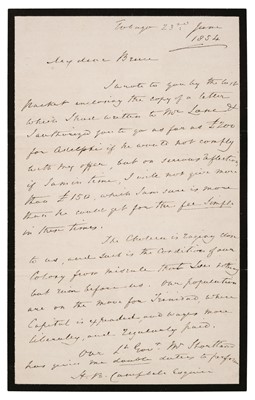 Tobago 23rd June
1854
My dear Bruce
I wrote to you by the last
Packet enclosing the copy of a letter
which I had written to Mr Lane &
I authorized you to go as far as £200
for Adelphi if he would not comply
with my offer, but on serious reflection
if I am in time, I will not give more
than £150, which I am sure is more
than he could get for the fee simple
in these times.
The Cholera is raging close
to us, and such is the condition of our
Colony from misrule that I see nothing
but ruin before us. Our population
are on the move for Trinidad, where
Capital is expended and wages more
liberally, and regularly paid.
Our Lt Govr Mr Shortland
has given me double duties to perform
A. B. Campbell Esquire